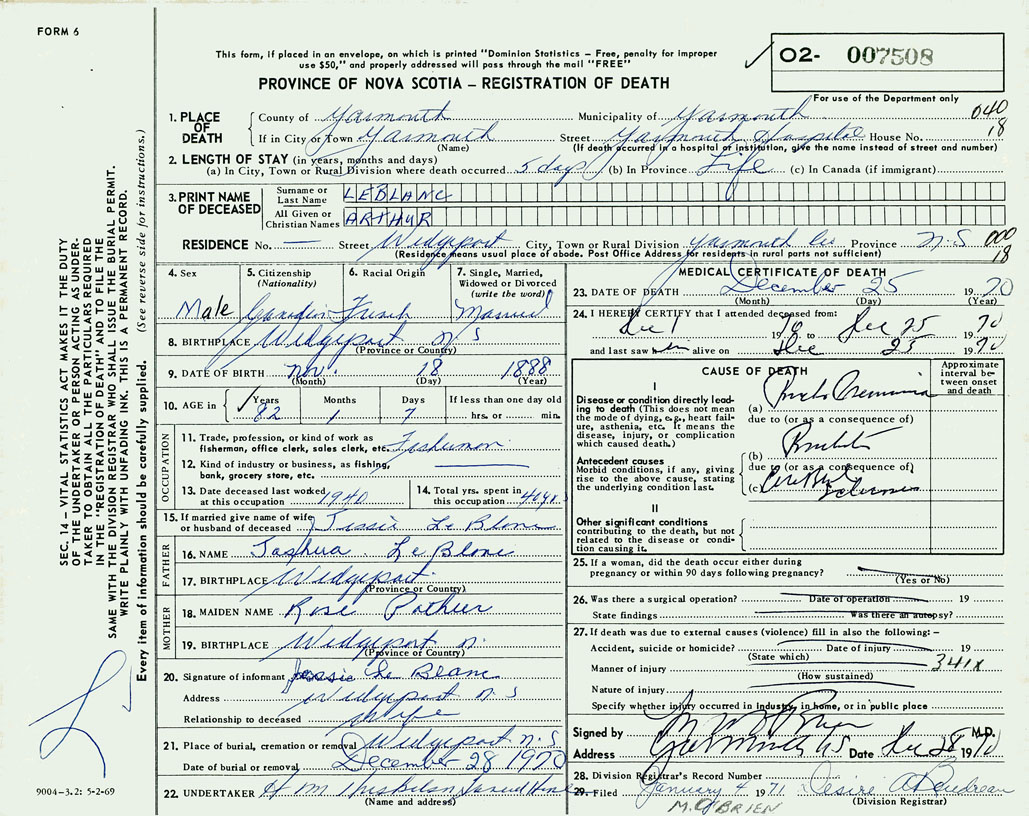 FORM 6
This form, if placed in an envelope, on which is printed "Dominion Statistics – Free, penalty for improper
use $50," and properly addressed will pass through the mail "FREE"
PROVINCE OF NOVA SCOTIA – REGISTRATION OF DEATH
O2- 007508
For use of the Department only
SEC. 14 – VITAL STATISTICS ACT MAKES IT THE DUTY
OF THE UNDERTAKER OR PERSON ACTING AS UNDER-
TAKER TO OBTAIN ALL THE PARTICULARS REQUIRED
IN THE "REGISTRATION OF DEATH" AND TO FILE THE
SAME WITH THE DIVISION REGISTRAR WHO SHALL ISSUE THE BURIAL PERMIT.
WRITE PLAINLY WITH UNFADING INK. THIS IS A PERMANENT RECORD.
Every item of information should be carefully supplied. (See reverse side for instructions.)
1. PLACE OF DEATH
County of Yarmouth Municipality of Yarmouth 040
If in City or Town Yarmouth Street Yarmouth Hospital House No. 18
(Name) (If death occurred in a hospital or institution, give the name instead of street and number)
2. LENGTH OF STAY (in years, months and days)
(a) In City, Town or Rural Division where death occurred 5 days (b) In Province Life (c) In Canada (if immigrant)
3. PRINT NAME OF DECEASED
Surname or Last Name LEBLANC
All Given or Christian Names ARTHUR
RESIDENCE No. — Street Wedgeport City, Town or Rural Division Yarmouth Co Province N.S 000
(Residence means usual place of abode. Post Office Address for residents in rural parts not sufficient) 18
4. Sex
Male
5. Citizenship (Nationality)
Canadian
6. Racial Origin
French
7. Single, Married, Widowed or Divorced (write the word)
Married
8. BIRTHPLACE Wedgeport N S
(Province or Country)
9. DATE OF BIRTH Nov. 18 1888
(Month) (Day) (Year)
10. AGE in Years Months Days If less than one day old
82 1 7 hrs. or min.
OCCUPATION
11. Trade, profession, or kind of work as
fisherman, office clerk, sales clerk, etc. Fisherman
12. Kind of industry or business, as fishing,
bank, grocery store, etc.
13. Date deceased last worked at this occupation 1940
14. Total yrs. spent in this occupation 40 yrs
15. If married give name of wife
or husband of deceased Jessie Le Blanc
FATHER
16. NAME Le Blanc
17. BIRTHPLACE Wedgeport
(Province or Country)
MOTHER
18. MAIDEN NAME Rose
19. BIRTHPLACE Wedgeport
(Province or Country)
20. Signature of informant Jessie Le Blanc
Address Wedgeport N S
Relationship to deceased wife
21. Place of burial, cremation or removal Wedgeport N.S
Date of burial or removal December 28 1970
22. UNDERTAKER H M
(Name and address)
9004-3.2: 5-2-69
MEDICAL CERTIFICATE OF DEATH
23. DATE OF DEATH December 25 1970
(Month) (Day) (Year)
24. I HEREBY CERTIFY that I attended deceased from:
Dec 1 1970 to Dec 25 1970
and last saw alive on Dec 25 1970
CAUSE OF DEATH
Approximate interval be-tween onset and death
I
Disease or condition directly lead-
ing to death (This does not mean
the mode of dying, e.g., heart fail-
ure, asthenia, etc. It means the
disease, injury, or complication
which caused death.)
(a)
due to (or as a consequence of)
Antecedent causes
Morbid conditions, if any, giving
rise to the above cause, stating
the underlying condition last.
(b)
due to (or as a consequence of)
(c)
II
Other significant conditions
contributing to the death, but not
related to the disease or condi-
tion causing it.
25. If a woman, did the death occur either during
pregnancy or within 90 days following pregnancy?
(Yes or No)
26. Was there a surgical operation? Date of operation 19
State findings Was there an autopsy?
27. If death was due to external causes (violence) fill in also the following: –
Accident, suicide or homicide? Date of injury 19
(State which)
Manner of injury 341X
(How sustained)
Nature of injury
Specify whether injury occurred in industry, in home, or in public place
Signed by M.D.
Address Yarmouth NS Date Dec 28 1970
28. Division Registrar's Record Number
29. Filed January 4 1971 Desire
M. O'BRIEN (Division Registrar)